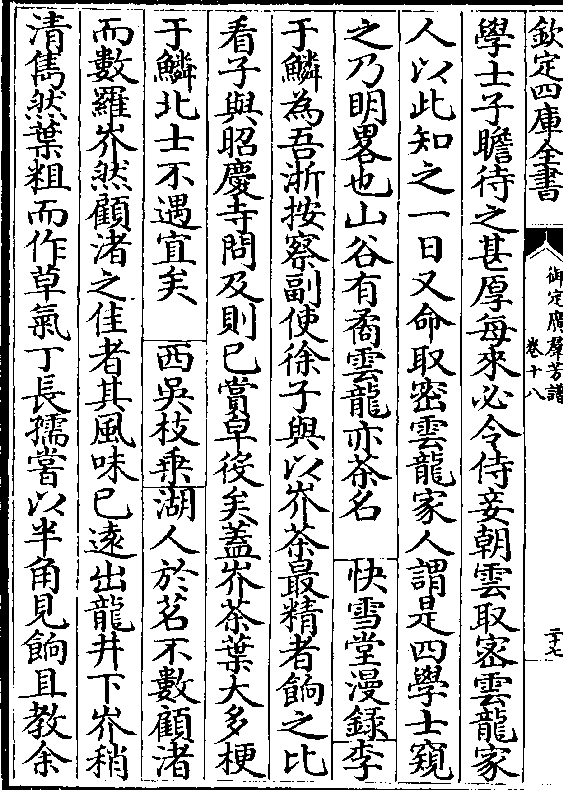 欽定四庫全書
御定廣羣芳譜
卷十八
二十七
學士子瞻待之甚厚每來必令侍妾朝雲取密雲龍家
人以此知之一日又命取密雲龍家人謂是四學士窺
之乃明畧也山谷有矞雲龍亦茶名 快雪堂漫録李
于鱗為吾浙按察副使徐子與以岕茶最精者餉之比
看子與昭慶寺問及則已賞皁役矣蓋岕茶葉大多梗
于鱗北士不遇宜矣 西吳枝乗湖人於茗不數顧渚
而數羅岕然顧渚之佳者其風味已遠出龍井下岕稍
清雋然葉粗而作草氣丁長孺嘗以半角見餉且教余